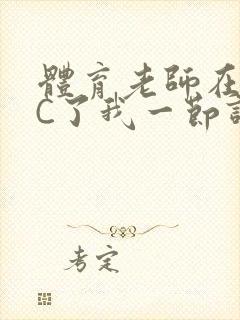 體育老師在
C了我一節
考定